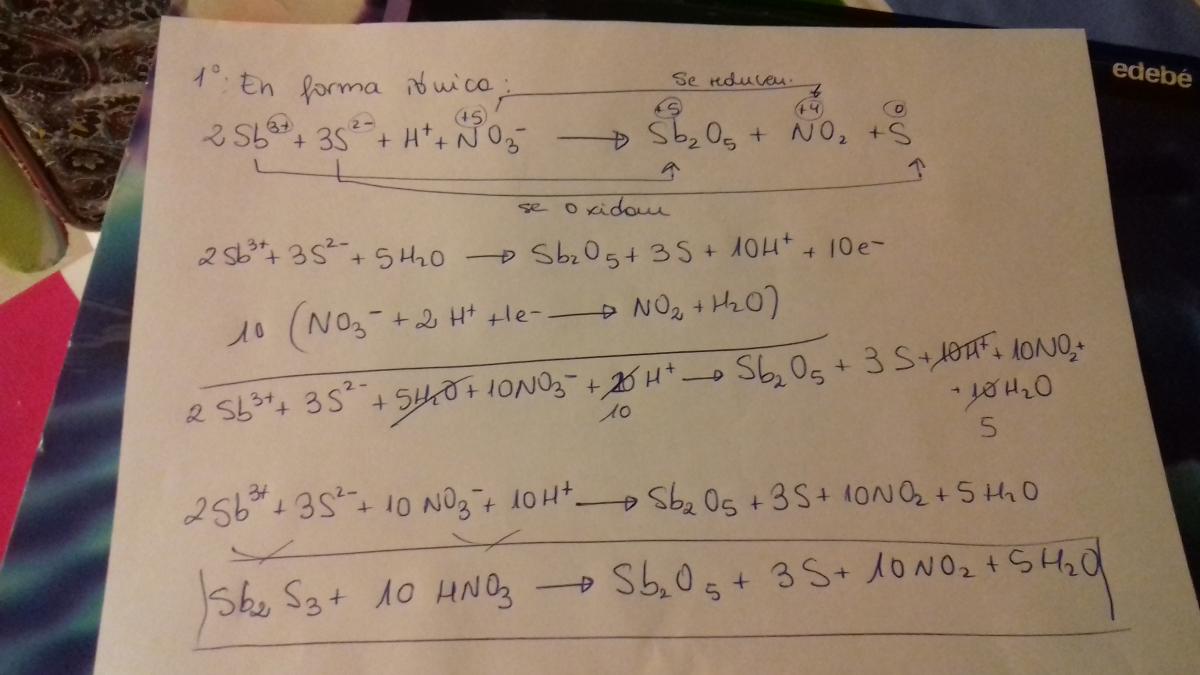 edebé
1º: En forma iónica:
se reducen.
+5 +5 +4 0
2Sb³⁺ + 3S²⁻ + H⁺ + NO₃⁻ → Sb₂O₅ + NO₂ + S
se oxidan
2Sb³⁺ + 3S²⁻ + 5H₂O → Sb₂O₅ + 3S + 10H⁺ + 10e⁻
10 (NO₃⁻ + 2H⁺ + 1e⁻ → NO₂ + H₂O)
2Sb³⁺ + 3S²⁻ + 5H₂O + 10NO₃⁻ + 20H⁺ → Sb₂O₅ + 3S + 10H⁺ + 10NO₂ +
+ 10H₂O
10 5
2Sb³⁺ + 3S²⁻ + 10NO₃⁻ + 10H⁺ → Sb₂O₅ + 3S + 10NO₂ + 5H₂O
Sb₂S₃ + 10HNO₃ → Sb₂O₅ + 3S + 10NO₂ + 5H₂O